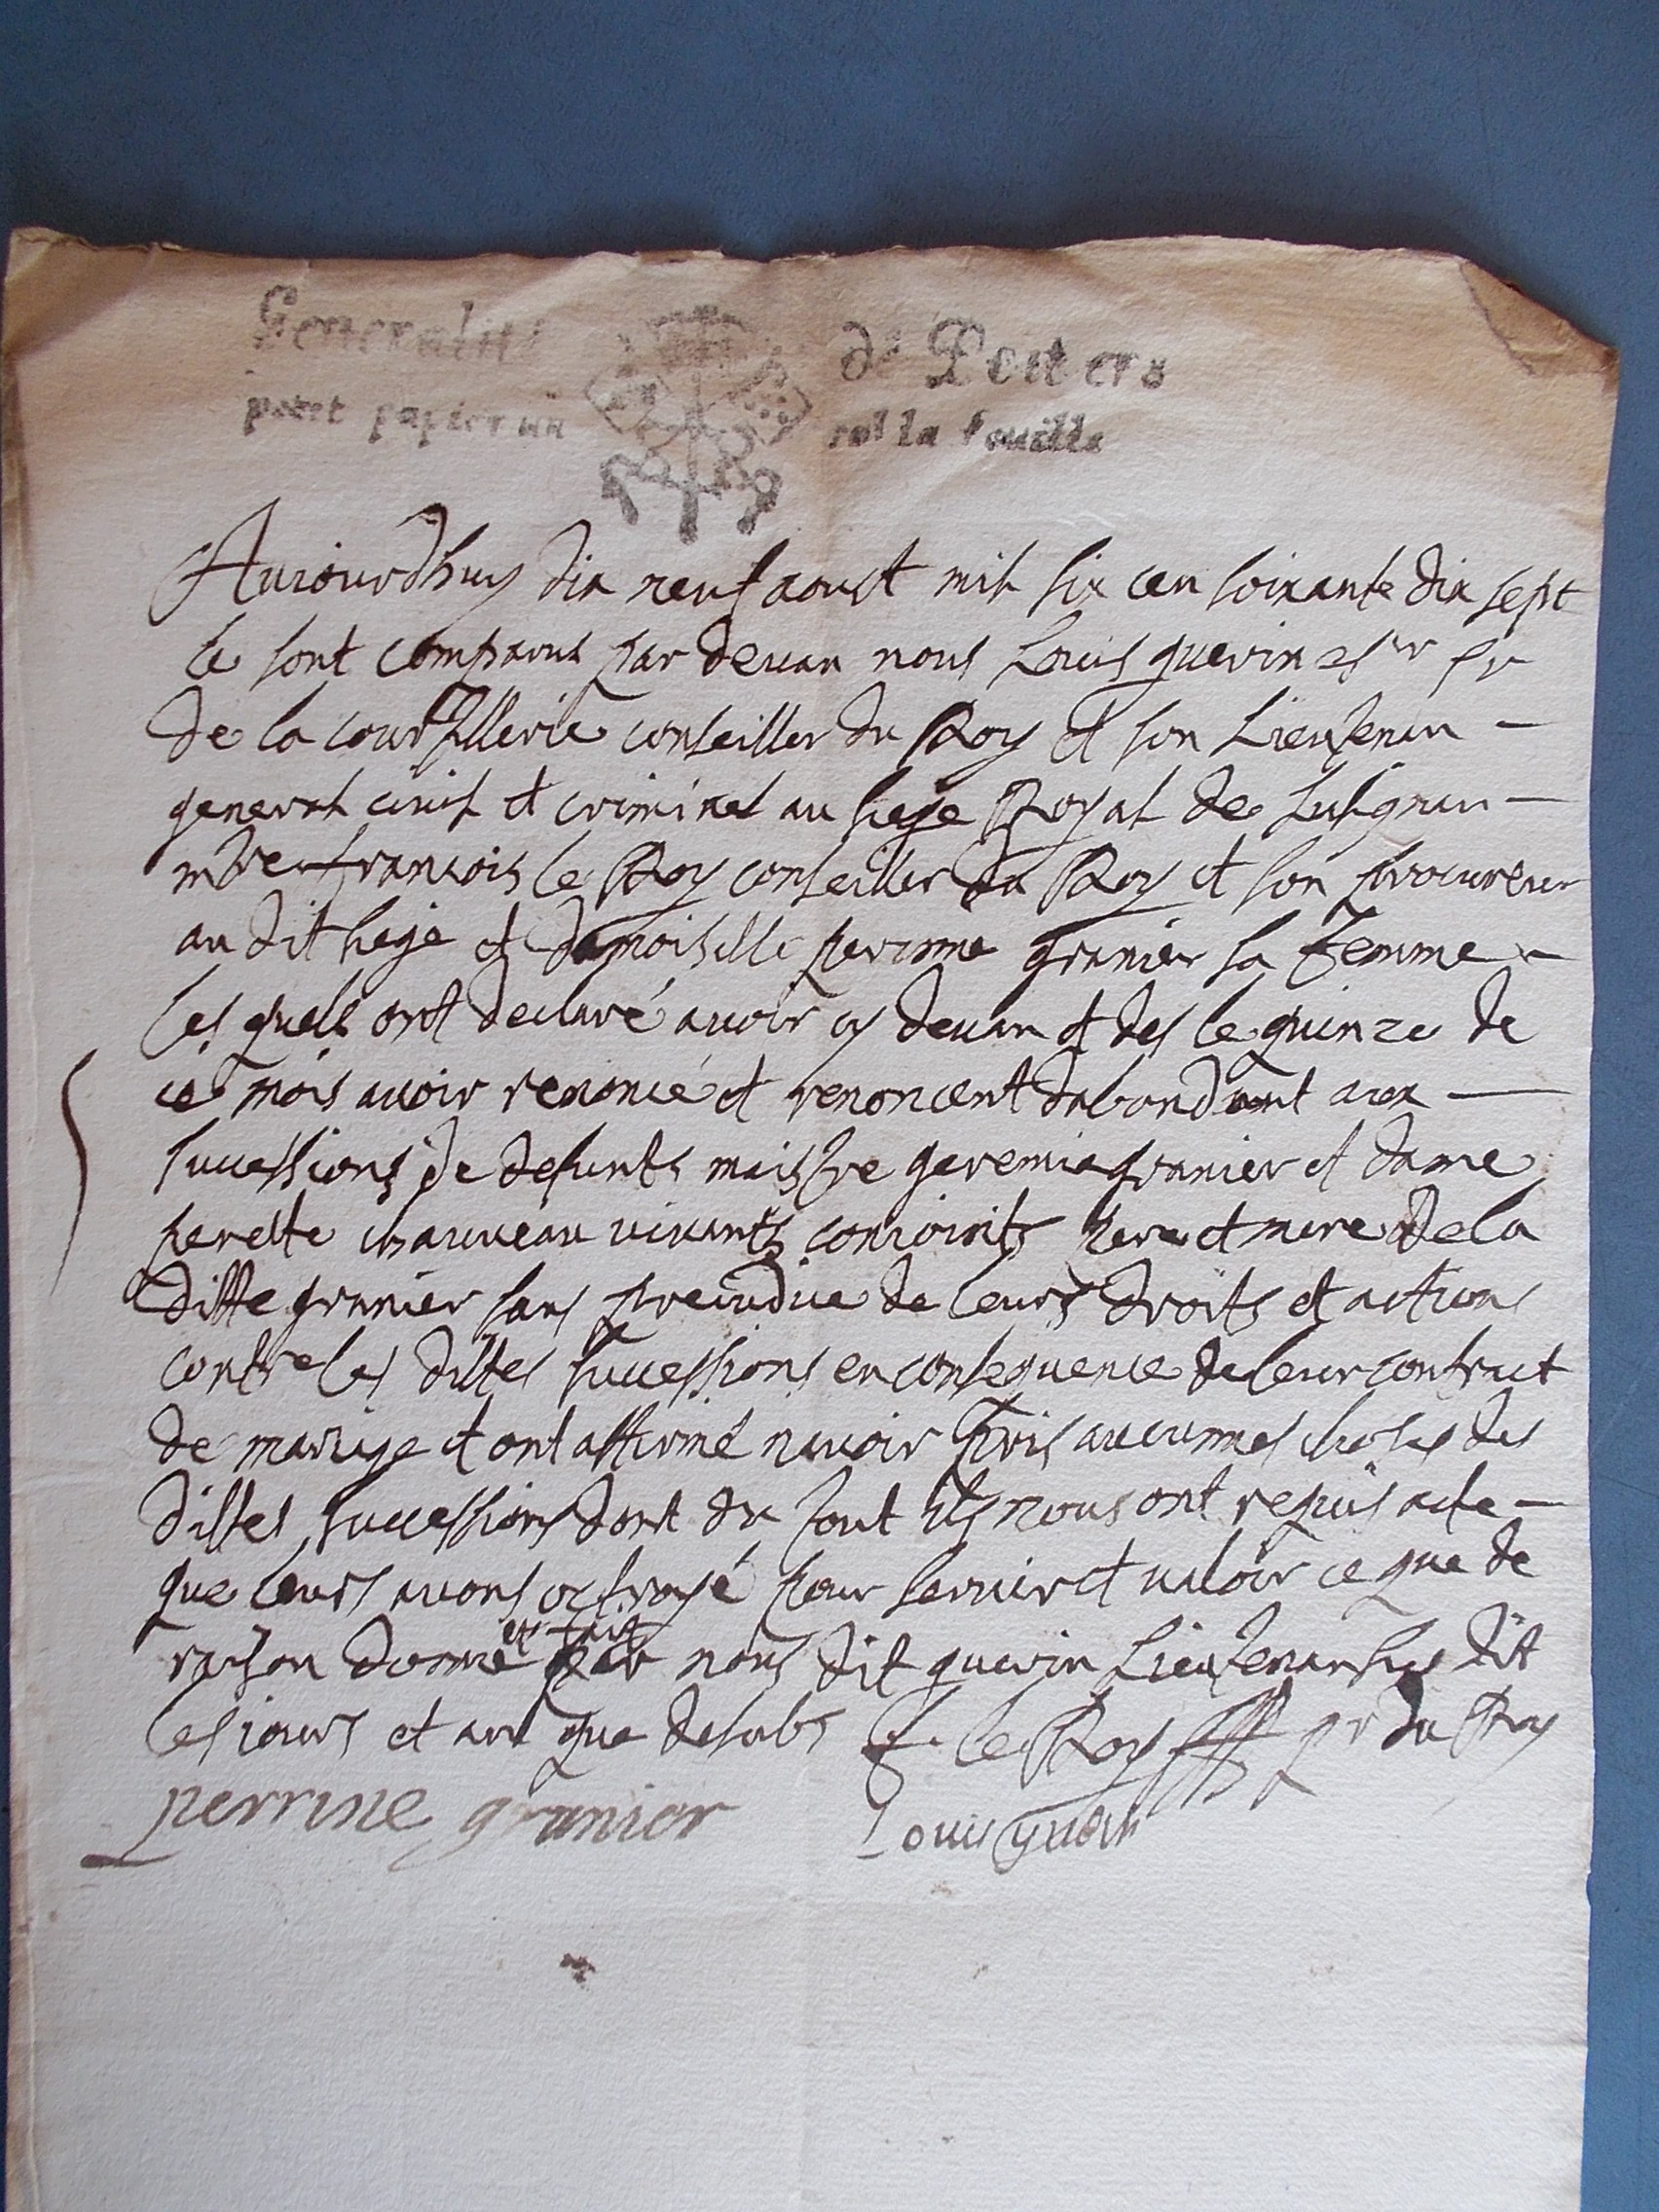 Generalité de Poitiers
petit papier un sol la feuille
Auiourdhuy dix neuf aoust mil six cen soixante dix sept
se sont comparus par deuan nous Louis guerin esr sr
de la courtillerie conseiller du Roy et son Lieutenan
general ciuil et criminel au siege Royal de Lusignan
mtre francois le Roy conseiller du Roy et son procureur
au dit siege et damoiselle perinne granier sa femme
les quels ont declaré auoir cy deuan et des le quinze de
ce mois auoir renoncé et renoncent dabondant aux
successions de defunts maistre geremie granier et dame
perette chauueau viuants conioints pere et mere de la
ditte granier sans preiudice de leurs droits et actions
contre les dittes successions en consequence de leur contract
de mariage et ont affirmé nauoir pris aucunnes choses des
dittes successions dont du tout ils nous ont requis acte
que leurs auons octroyé pour seruir et ualoir ce que de
raison donné et fait par nous dit guerin Lieutenan sus dit
les iours et an que desubs f. le Roy pr du Roy
perrine granier Louis guerin